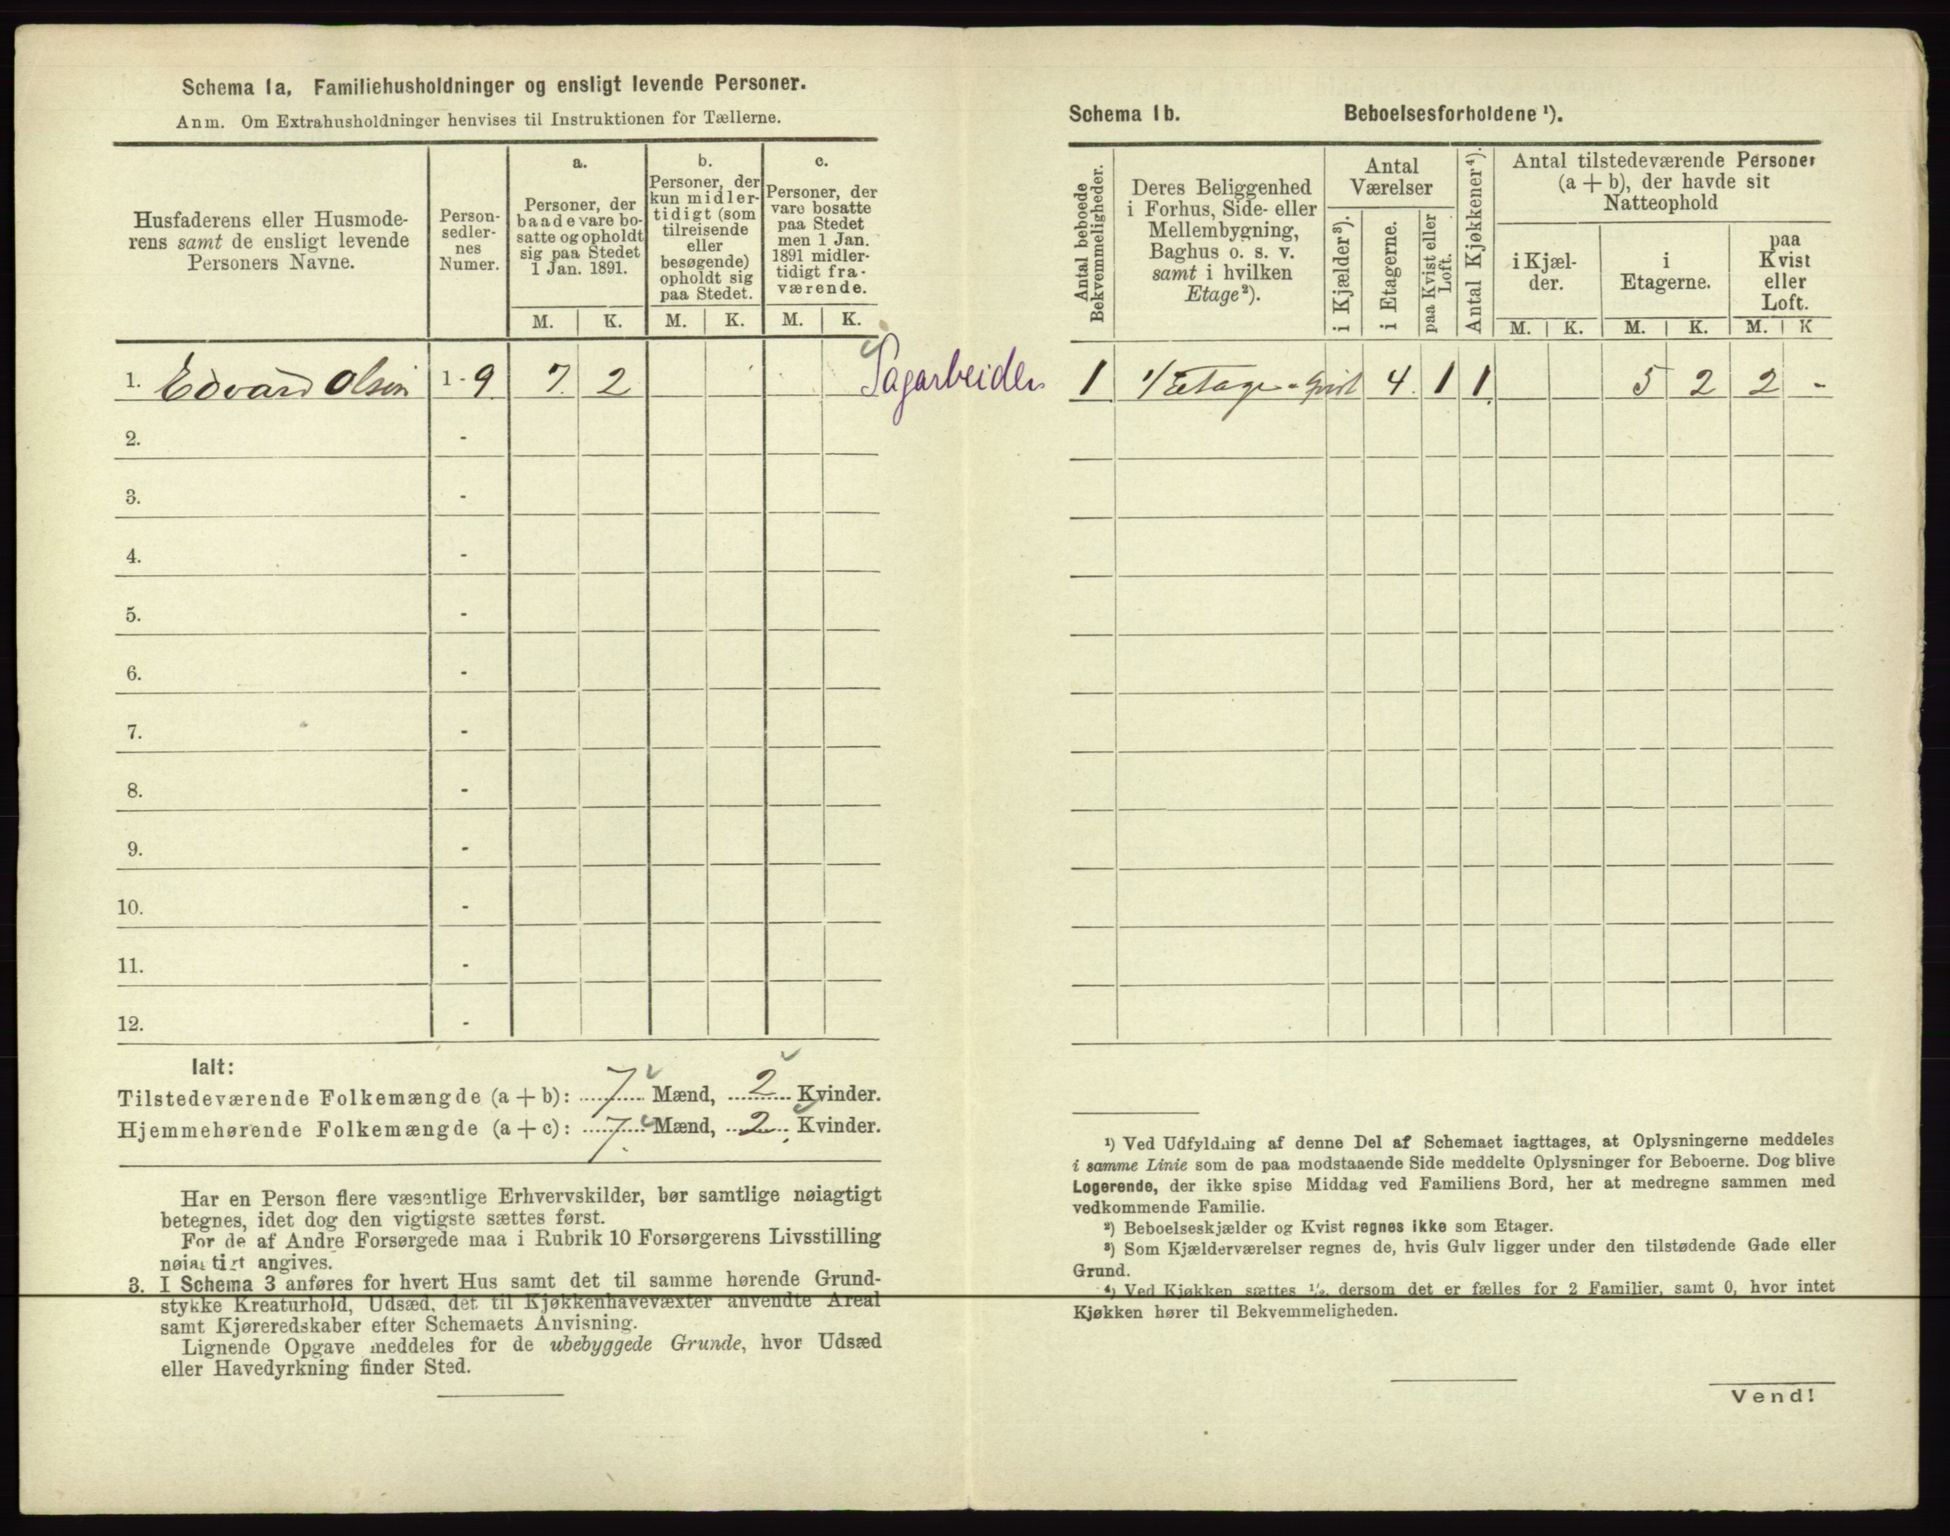 Schema 1a, Familiehusholdninger og ensligt levende Personer.
Anm. Om Extrahusholdninger henvises til Instruktionen for Tællerne.
Husfaderens eller Husmode-
rens samt de ensligt levende
Personers Navne.
Person-
sedler-
nes
Numer.
a.
Personer, der
baade vare bo-
satte og opholdt
sig paa Stedet
1 Jan. 1891.
b.
Personer, der
kun midler-
tidigt (som
tilreisende
eller
besøgende)
opholdt sig
paa Stedet.
c.
Personer, der
vare bosatte
paa Stedet
men 1 Jan.
1891 midler-
tidigt fra-
værende.
M. K. M. K. M. K.
1. Edvard Olsen 1-9. 7. 2 Sagarbeider
2. -
3. -
4. -
5. -
6. -
7. -
8. -
9. -
10. -
11. -
12. -
Ialt:
Tilstedeværende Folkemængde (a + b): 7 Mænd, 2 Kvinder.
Hjemmehørende Folkemængde (a + c): 7. Mænd, 2. Kvinder.
Har en Person flere væsentlige Erhvervskilder, bør samtlige nøiagtigt
betegnes, idet dog den vigtigste sættes først.
For de af Andre Forsørgede maa i Rubrik 10 Forsørgerens Livsstilling
nøiagtigt angives.
3. I Schema 3 anføres for hvert Hus samt det til samme hørende Grund-
stykke Kreaturhold, Udsæd, det til Kjøkkenhavevæxter anvendte Areal
samt Kjøreredskaber efter Schemaets Anvisning.
Lignende Opgave meddeles for de ubebyggede Grunde, hvor Udsæd
eller Havedyrkning finder Sted.
Schema 1b. Beboelsesforholdene ¹).
Antal beboede
Bekvemmeligheder.
Deres Beliggenhed
i Forhus, Side- eller
Mellembygning,
Baghus o. s. v.
samt i hvilken
Etage²).
Antal
Værelser
i Kjælder³).
i Etagerne.
paa Kvist eller
Loft.
Antal Kjøkkener⁴).
Antal tilstedeværende Personer
(a + b), der havde sit
Natteophold
i Kjæl-
der.
i
Etagerne.
paa
Kvist
eller
Loft.
M. K. M. K. M. K
1 1/ Etage - 4. 1 1. 5 2 2 -
¹) Ved Udfyldning af denne Del af Schemaet iagttages, at Oplysningerne meddeles
i samme Linie som de paa modstaaende Side meddelte Oplysninger for Beboerne. Dog blive
Logerende, der ikke spise Middag ved Familiens Bord, her at medregne sammen med
vedkommende Familie.
²) Beboelseskjælder og Kvist regnes ikke som Etager.
³) Som Kjælderværelser regnes de, hvis Gulv ligger under den tilstødende Gade eller
Grund.
⁴) Ved Kjøkken sættes ½, dersom det er fælles for 2 Familier, samt 0, hvor intet
Kjøkken hører til Bekvemmeligheden.
Vend!